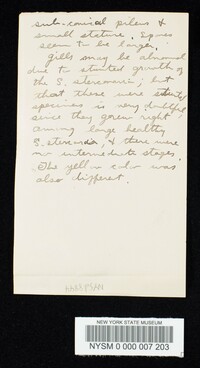 sub-conical pileus &
small stature. Spores
seem to be larger.
gills may be abnormal
due to stunted growth of
the S. stercoraria; but
that there were
specimens is very doubtful
since they grew right
among large healthy
S. stercoraria, & there were
no intermediate stages.
The yellow color was
also different.
NEW YORK STATE MUSEUM
NYSM 0 000 007 203